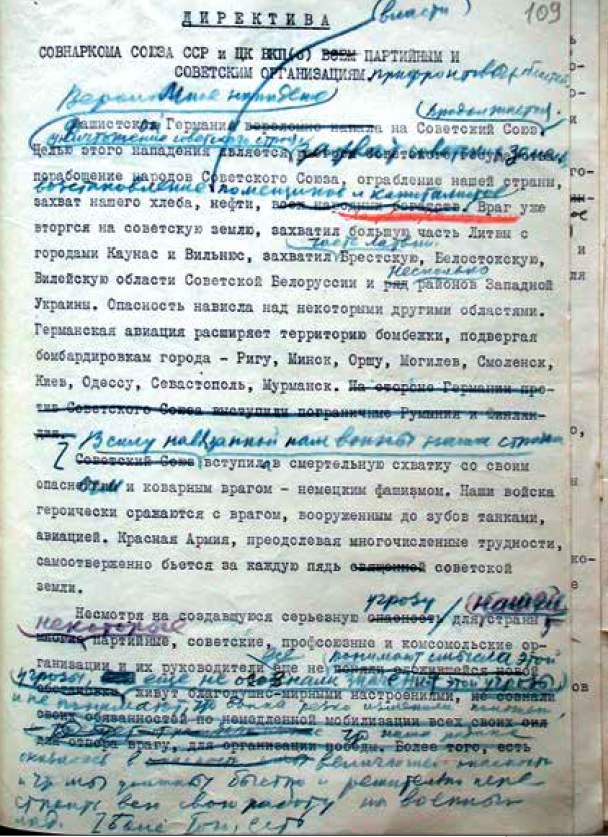 109
(власти)
ДИРЕКТИВА
СОВНАРКОМА СОЮЗА ССР и ЦК ВКП(б) ВСЕМ ПАРТИЙНЫМ И
СОВЕТСКИМ ОРГАНИЗАЦИЯМ прифронтовых областей
Вероломное нападение
(продолжается.
фашистской Германии вероломно напала на Советский Союз
уничтожение советского строя
Целью этого нападения является
захват советских земель
порабощение народов Советского Союза, ограбление нашей страны,
восстановление помещиков и капиталистов
захват нашего хлеба, нефти, всех народных богатств. Враг уже
вторгся на советскую землю, захватил большую часть Литвы с
часть Латвии.
городами Каунас и Вильнюс, захватил Брестскую, Белостокскую,
несколько
Вилейскую области Советской Белоруссии и ряд районов Западной
Украины. Опасность нависла над некоторыми другими областями.
Германская авиация расширяет территорию бомбежки, подвергая
бомбардировкам города - Ригу, Минск, Оршу, Могилев, Смоленск,
Киев, Одессу, Севастополь, Мурманск. На стороне Германии про-
тив Советского Союза выступили пограничные Румыния и Финлян-
дия.
В силу навязанной нам войны наша страна
Советский Союз вступила в смертельную схватку со своим
опасным и коварным врагом - немецким фашизмом. Наши войска
героически сражаются с врагом, вооруженным до зубов танками,
авиацией. Красная Армия, преодолевая многочисленные трудности,
самоотверженно бьется за каждую пядь священной советской
земли.
угрозу нашей
Несмотря на создавшуюся серьезную опасность для страны,
некоторые
многие партийные, советские, профсоюзные и комсомольские ор-
понимают смысла этой
ганизации и их руководители еще не поняли сложившейся новой
угрозы, еще не осознали значения этой угрозы
обстановки, живут благодушно-мирными настроениями, не осознали
и не понимают, что война резко изменила положение,
своих обязанностей по немедленной мобилизации всех своих сил
что наша родина
для отпора врагу, для организации победы. Более того, есть
оказалась в величайшей опасности
и что мы должны быстро и решительно пере
строить всю свою работу на военный
лад.